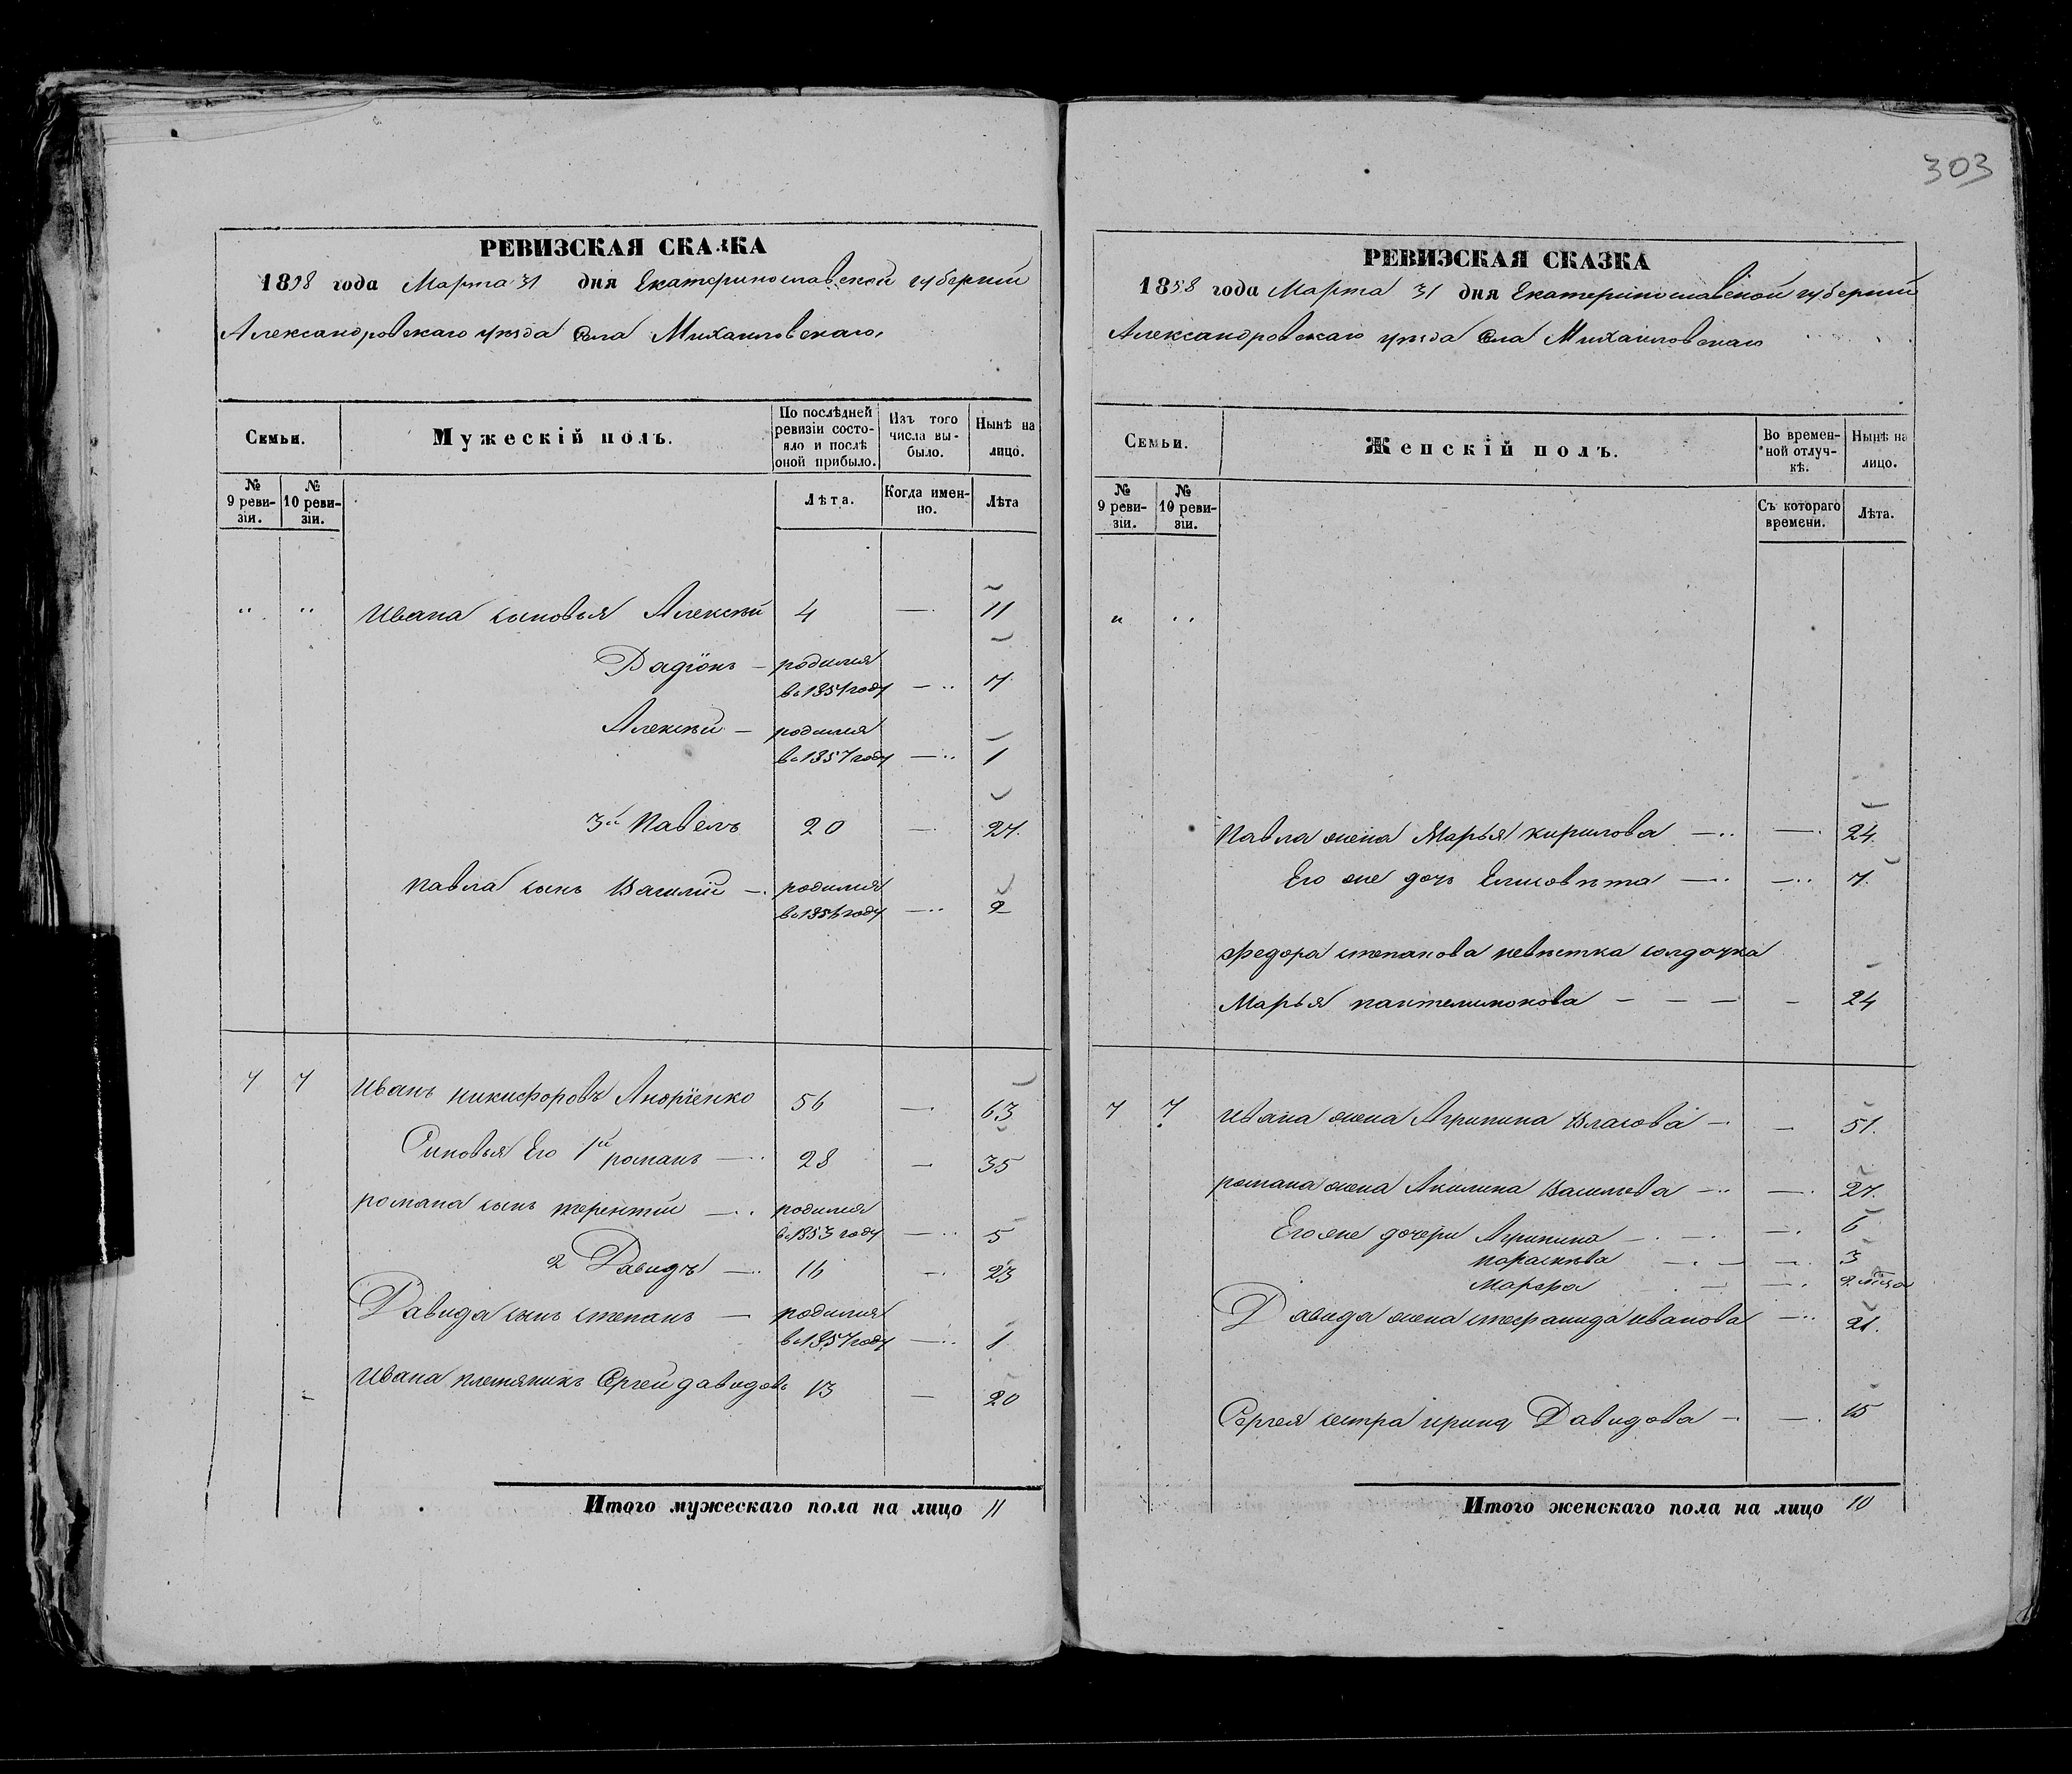 303
РЕВИЗСКАЯ СКАЗКА
1858 года Марта 31 дня Екатеринославской губернии
Александровскаго уѣзда Села Михайловскаго,
Семьи.
Мужескій полъ.
По послѣдней ревизіи состояло и послѣ оной прибыло.
Изъ того числа выбыло.
Нынѣ на лицо.
№ 9 ревизіи.
№ 10 ревизіи.
Лѣта.
Когда именно.
Лѣта
" " Ивана сыновья Алексѣй 4 — 11
Радіонъ — родился
въ 1851 году — 7
Алексѣй — родился
въ 1857 году — 1
3й Павелъ 20 — 27.
Павла сынъ Василій — родился
въ 1856 году — 2
7 7 Иванъ Никифоровъ Андріенко 56 — 63
Сыновья Его 1й романъ — 28 — 35
романа сынъ терентій — родился
въ 1853 году — 5
2 Давидъ — 16 — 23
Давида сынъ степанъ — родился
въ 1857 году — 1
Ивана племяникъ Сергей давидовъ 13 — 20
Итого мужескаго пола на лицо 11
РЕВИЗСКАЯ СКАЗКА
1858 года Марта 31 дня Екатеринославской губернии
Александровскаго уѣзда Села Михайловскаго
Семьи.
Женскій полъ.
Во временной отлучкѣ.
Нынѣ на лицо.
№ 9 ревизіи.
№ 10 ревизіи.
Съ котораго времени.
Лѣта.
" "
Павла жена Марья кирилова — — 24.
Его же дочь Елисовѣта — — 7.
Федора степанова невѣстка солдатка
Марья пантелимонова — — — — 24
7 7. Ивана жена Агрипина Власова — — 51.
романа жена Акилина Васильева — — 27.
Его же дочери Агрипина — — — 6
параскѣва — — — 3
Марфа — — 2 мѣсяца
Давида жена стефанида иванова — 21.
Сергея сестра ирина Давидова — — 15
Итого женскаго пола на лицо 10